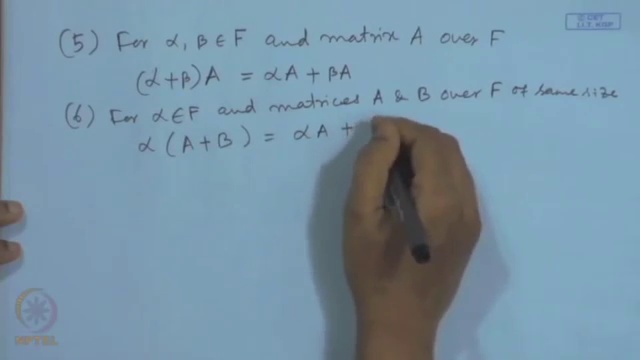 (5) For α, β ∈ F and matrix A over F
(α+β)A = αA + βA
(6) For α∈F and matrices A & B over F of same size
α (A+B) = αA +
© CET
I.I.T. KGP
NPTEL